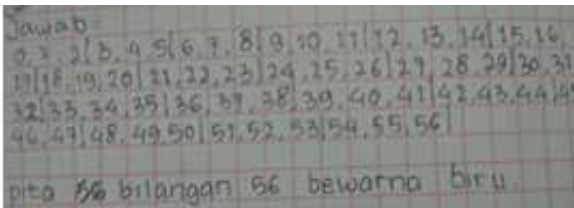 Jawab
0, 1, 2|3, 4, 5|6, 7, 8|9, 10, 11|12, 13, 14|15, 16,
17|18, 19, 20|21, 22, 23|24, 25, 26|27, 28, 29|30, 31
32|33, 34, 35|36, 37, 38|39, 40, 41|42, 43, 44|45
46, 47|48, 49, 50|51, 52, 53|54, 55, 56|
pita bilangan 56 bewarna biru.